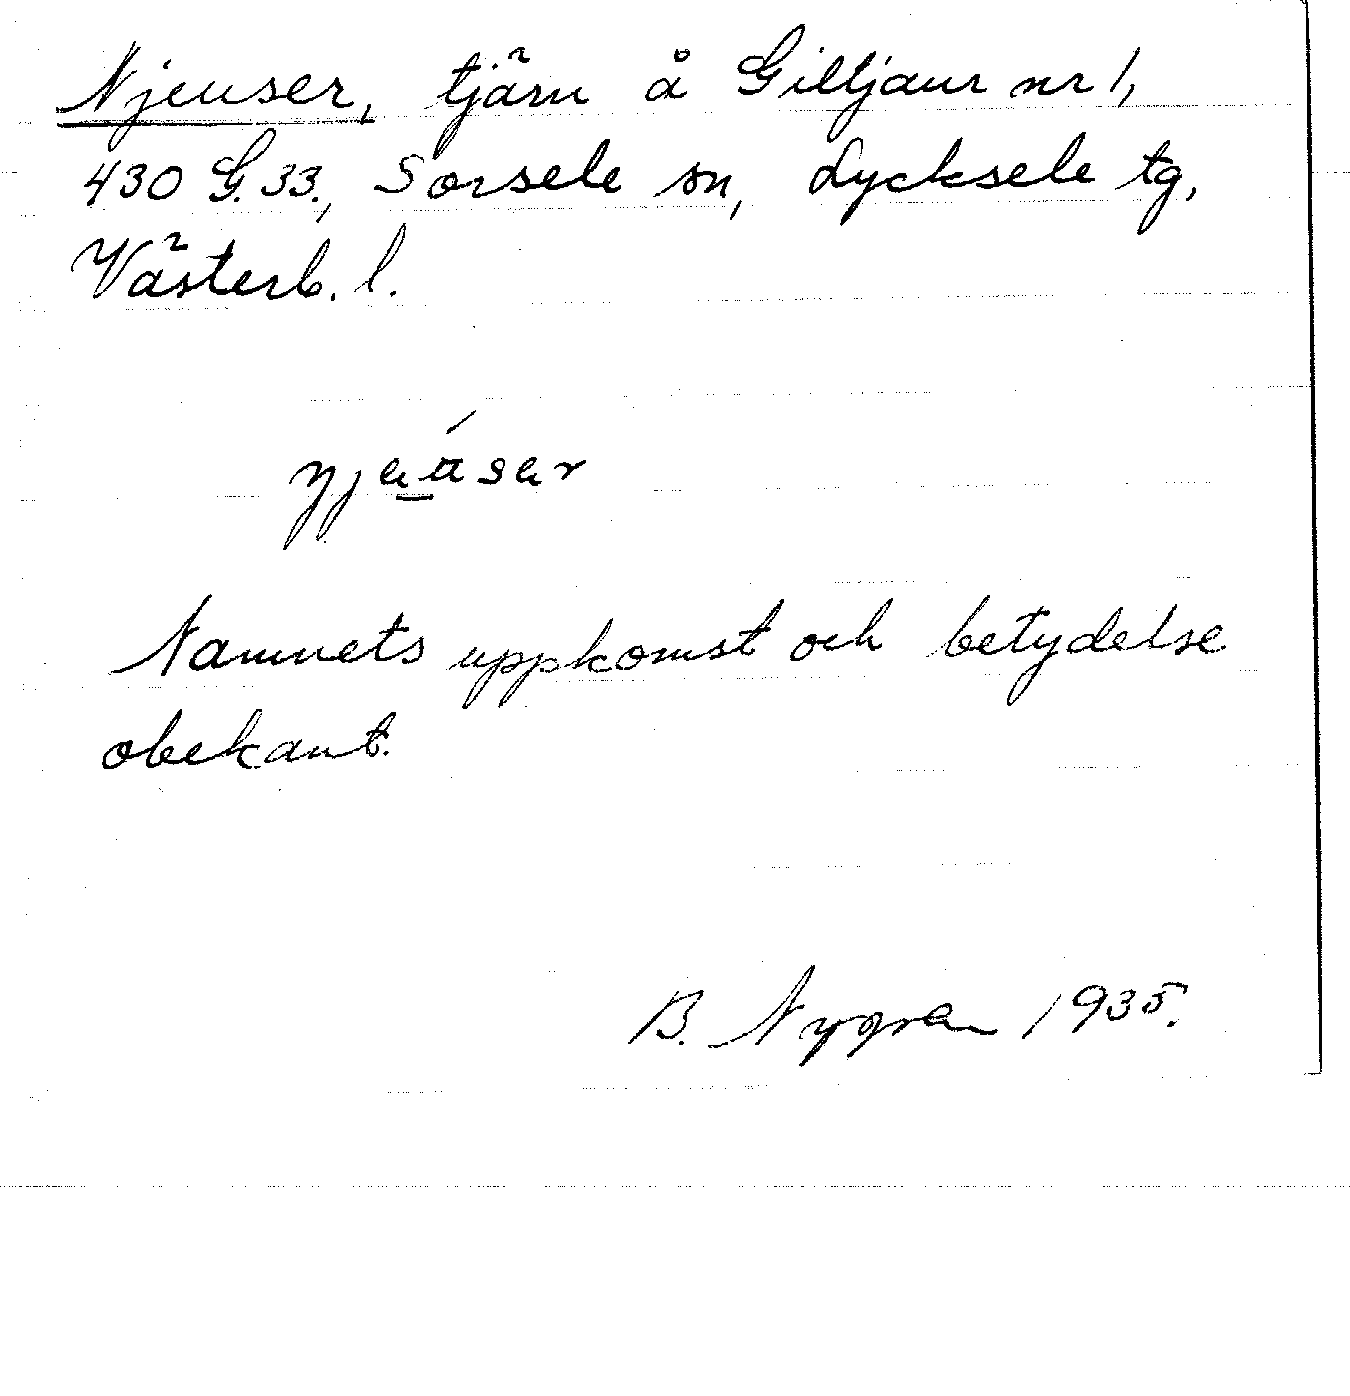 Njeuser, tjärn å Gilljaur nr 1,
430 G. 33., Sorsele sn, Lycksele tg,
Västerb. l.
Namnets uppkomst och betydelse
obekant.
B. Nygren 1935.